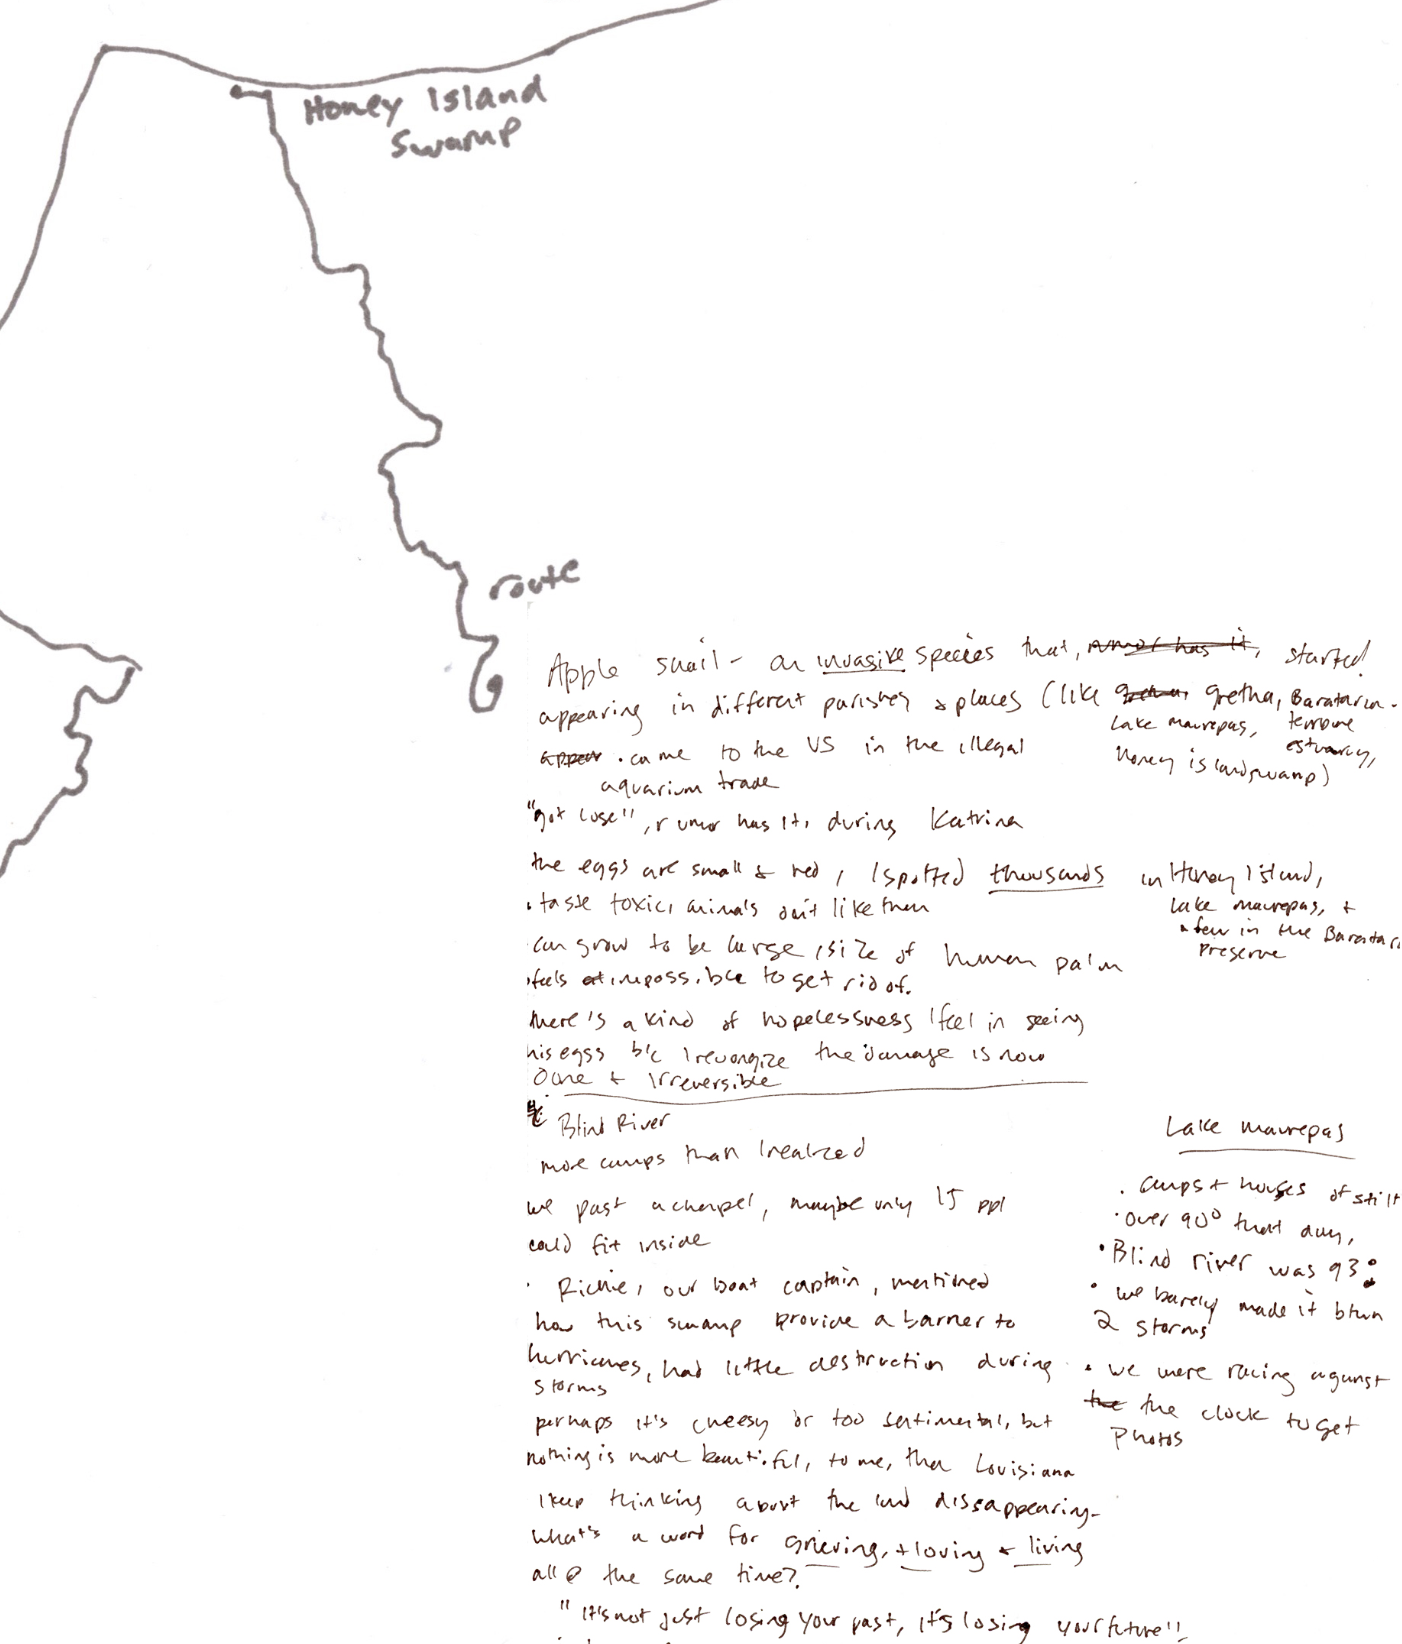 Honey Island
Swamp
route
Apple snail - an invasive species that, rumor has it, started
appearing in different parishes & places (like gretna, Barataria-
Lake maurepas, terrebonne
estuary,
honey island swamp)
appear . came to the US in the illegal
aquarium trade
"got lose", rumor has it, during Katrina
the eggs are small & red, I spotted thousands in Honey Island,
Lake maurepas, +
a few in the Baratari
Preserve
. taste toxic, animals don't like them
can grow to be large, size of human palm
. feels impossible to get rid of.
there's a kind of hopelessness I feel in seeing
his eggs b/c I recongize the damage is now
done + irreversible
Blind River
more camps than I realized
we past a chapel, maybe only 15 ppl
could fit inside
. Richie, our boat captain, mentioned
how this swamp provide a barrier to
hurricanes, had little destruction during
storms
perhaps it's cheesy or too sentimental, but
nothing is more beautiful, to me, than Louisiana
I keep thinking about the land dissappearing-
what's a word for grieving, + loving + living
all @ the same time?
"it's not just losing your past, it's losing your future"
Lake maurepas
. camps + houses of stilt
. over 90° that day,
. Blind river was 93°
. we barely made it btwn
2 storms
. we were racing against
the the clock to get
photos